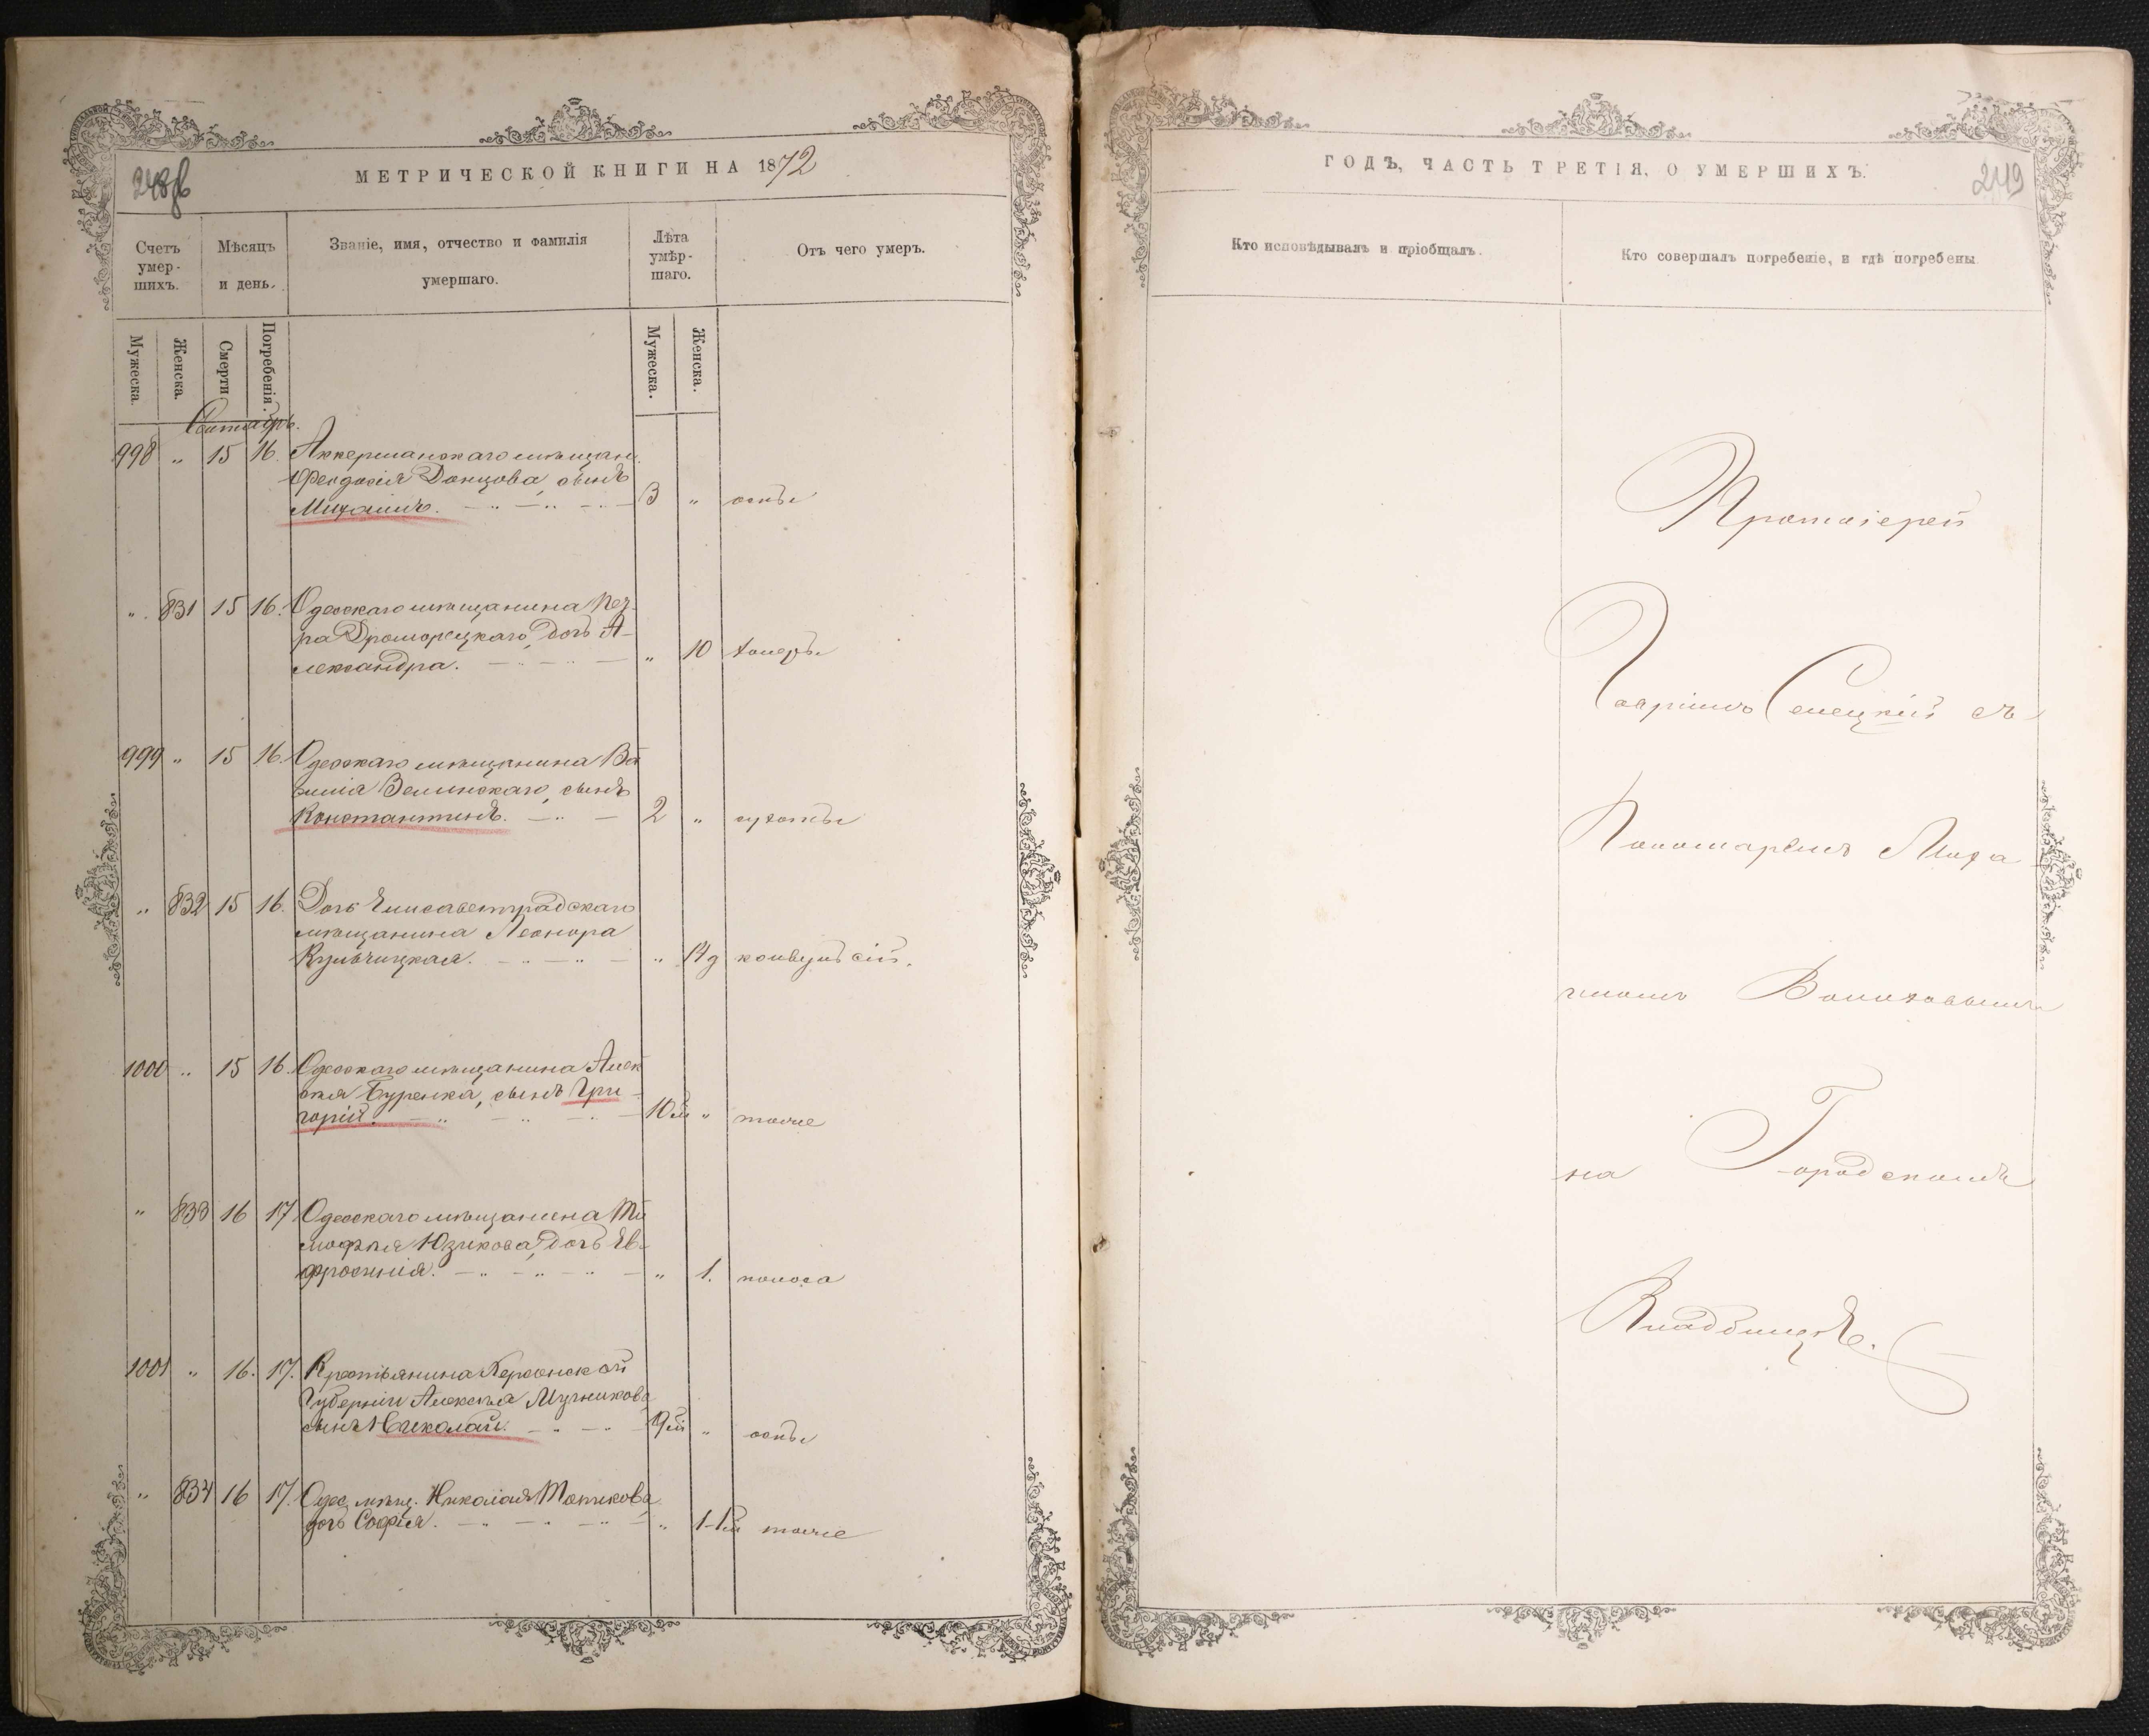 248об
МЕТРИЧЕСКОЙ КНИГИ НА 1872
Счетъ умер-шихъ.
Мѣсяцъ и день.
Званіе, имя, отчество и фамилія умершаго.
Лѣта умѣр-шаго.
Отъ чего умеръ.
Мужеска.
Женска.
Смерти
Погребенія.
Мужеска.
Женска.
Сентябрь.
998 " 15 16. Аккерманскаго мѣщан.
Феодосія Донцова, сынъ
Михаилъ. 3 " оспы
" 831 15 16. Одесскаго мѣщанина Пет-
ра Дроморецкаго, дочь А-
лександра. " 10 холеры
999 " 15 16. Одесскаго мѣщанина Ва
силія Зелинскаго, сынъ
Константинъ. 2 " сухоты
" 832 15 16. Дочь Елисаветградскаго
мѣщанина Леонора
Кульчицкая. " 14д конвульсій.
1000 " 15 16. Одесскаго мѣщанина Алек
сѣя Буренка, сынъ Гри-
горій. 10м " тоже
" 833 16 17 Одесскаго мѣщанина Ти
мофѣя Юзикова, дочь Ев-
фросинія. " 1. поноса
1001 " 16. 17. Крестьянина Херсонской
Губерніи Алексѣя Мучникова
сынъ Николай. 9м " оспы
" 834 16 17. Одес. мѣщ. Николая
дочь Софія. " тоже
ГОДЪ, ЧАСТЬ ТРЕТІЯ, О УМЕРШИХЪ.
249
Кто исповѣдывалъ и пріобщалъ.
Кто совершалъ погребеніе, и гдѣ погребены
Протоіерей
Гавріилъ Селецкій съ
Пономаремъ Миха
иломъ
на Городскомъ
Кладбищѣ.